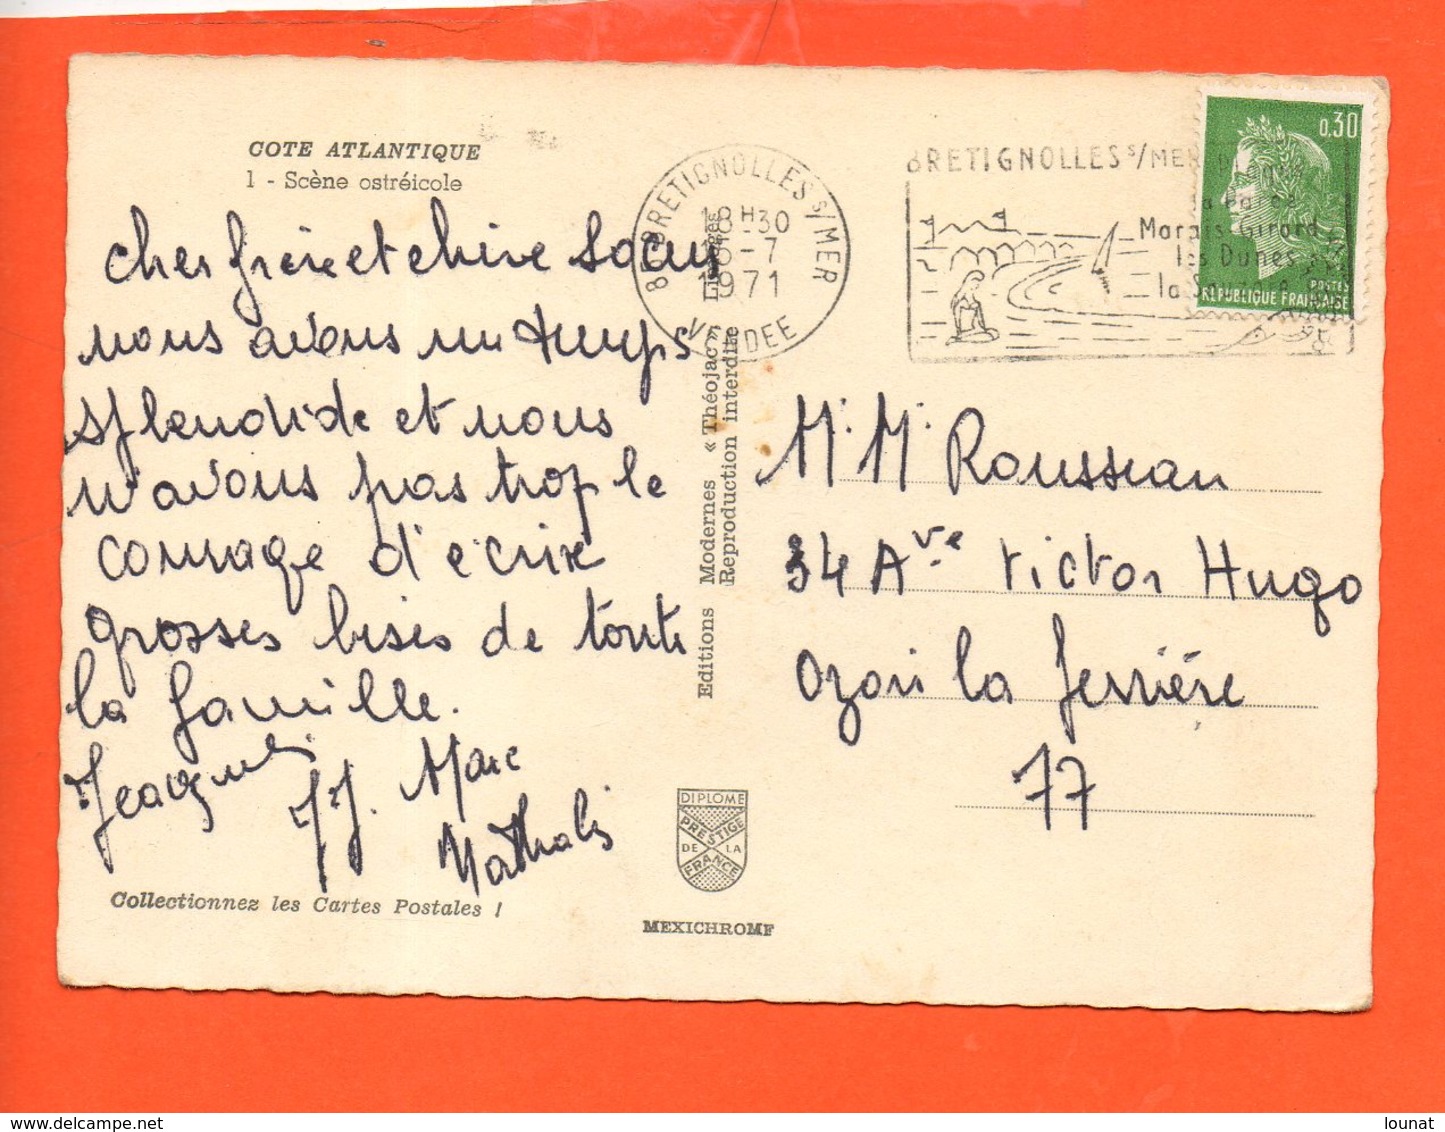 COTE ATLANTIQUE
1 - Scène ostréicole
Cher frère et chère Soeur
nous avons un temps
splendide et nous
n'avons pas trop le
courage d'écrire
grosses bises de toute
la famille.
JJ. Marc
Nathalie
Collectionnez les Cartes Postales !
Editions Modernes « Théojac » Limoges
Reproduction interdite
DIPLOME
PRESTIGE
DE LA
FRANCE
MEXICHROME
85 BRETIGNOLLES S/MER
18H30
1971
VENDEE
BRETIGNOLLES S/MER
Marais Girard
les Dunes
0,30
POSTES
REPUBLIQUE FRANÇAISE
M. M. Rousseau
34 Ave Victor Hugo
Ozoir la ferrière
77
lounat